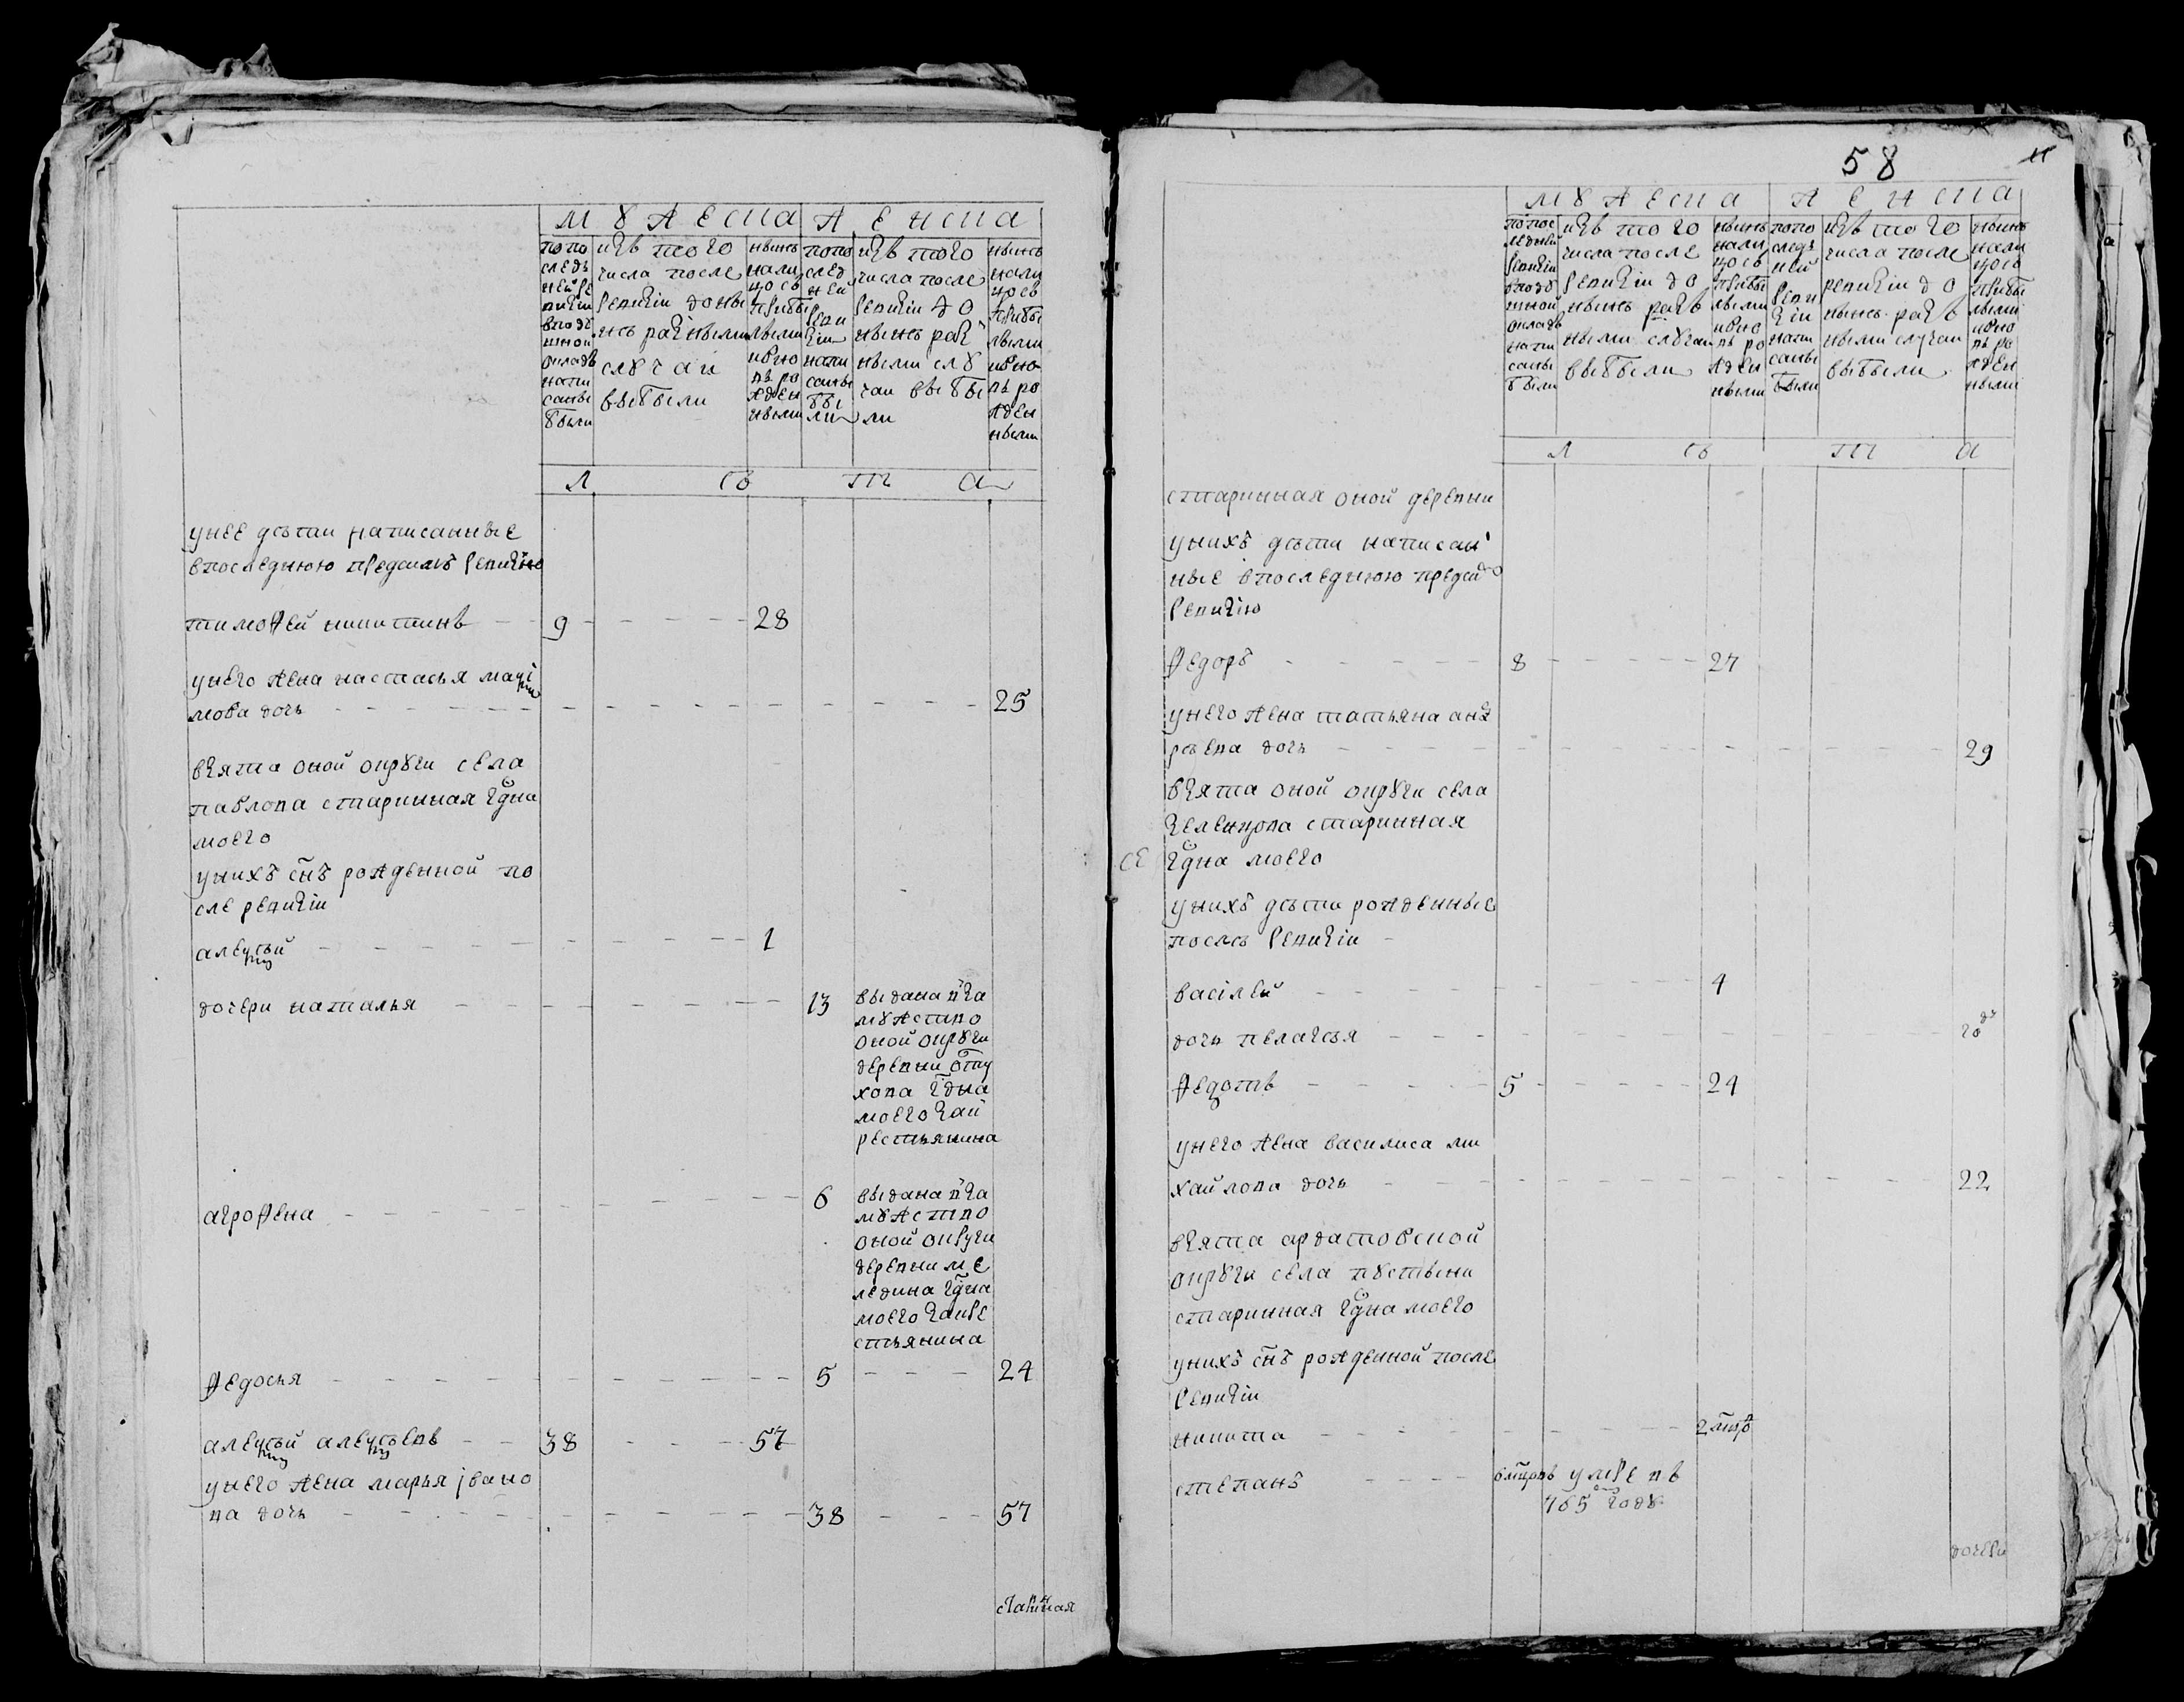 мужеска женска
попо
следъ
ней ре
визiи
вподу
шной
окладъ
напи
саны
были
изъ того
числа после
ревизiи доны
нѣ разными
случаи
выбыли
нынѣ
нали
цо съ
прибы
лыми
ивно
вь ро
жден
ными
попо
след
ней
реви
зiи
напи
саны
бы
ли
изъ того
числа после
ревизiи до
нынѣ раз
ными слу
чаи выбы
ли
нынѣ
нали
цо съ
прибы
лыми
ивно
вь ро
жден
ными
л ѣ т а
унее дѣти написанные
впоследнюю предсимъ ревизию
тимофей никитинъ 9 28
унего жена настасья макси
мова дочь 25
взята оной округи села
павлова старинная гдна
моего
унихъ снъ рожденной по
сле ревизiи
алексѣй 1
дочери наталья 13
выдана вза
мужство
оной округи
деревни оту
хова гдна
моего за к
рестьянина
агрофена 6
выдана вза
мужство
оной округи
деревни ме
ледина гдна
моего за кре
стьянина
федосья 5 24
алексѣй алексѣевъ 38 57
унего жена марья iвано
ва дочь 38 57
старинная
58
мужеска женска
попос
ледней
ревизiи
вподу
шной
окладъ
напи
саны
были
изъ того
числа после
ревизiи до
нынѣ разъ
ными случаи
выбыли
нынѣ
нали
цо съ
прибы
лыми
ивно
вь ро
жден
ными
попо
следъ
ней
реви
зiи
напи
саны
были
изъ того
числа после
ревизiи до
нынѣ разъ
ными случаи
выбыли
нынѣ
нали
цо съ
прибы
лыми
ивно
вь ро
жден
ными
л ѣ т а
старинная оной деревни
унихъ дѣти написан
ные впоследнюю предсидо
ревизiю
федоръ 8 27
унего жена татьяна анд
рѣева дочь 29
взята оной округи села
зеленцова старинная
се гдна моего
унихъ дѣти рожденные
послѣ ревизiи
василей 4
дочь пелагѣя году
федотъ 5 24
унего жена василиса ми
хайлова дочь 22
взята ардатовской
округи села пустыни
старинная гдна моего
унихъ снъ рожденной после
ревизiи
никита 2 мцо
степанъ 6 мцовъ умре въ
765 году
дочери